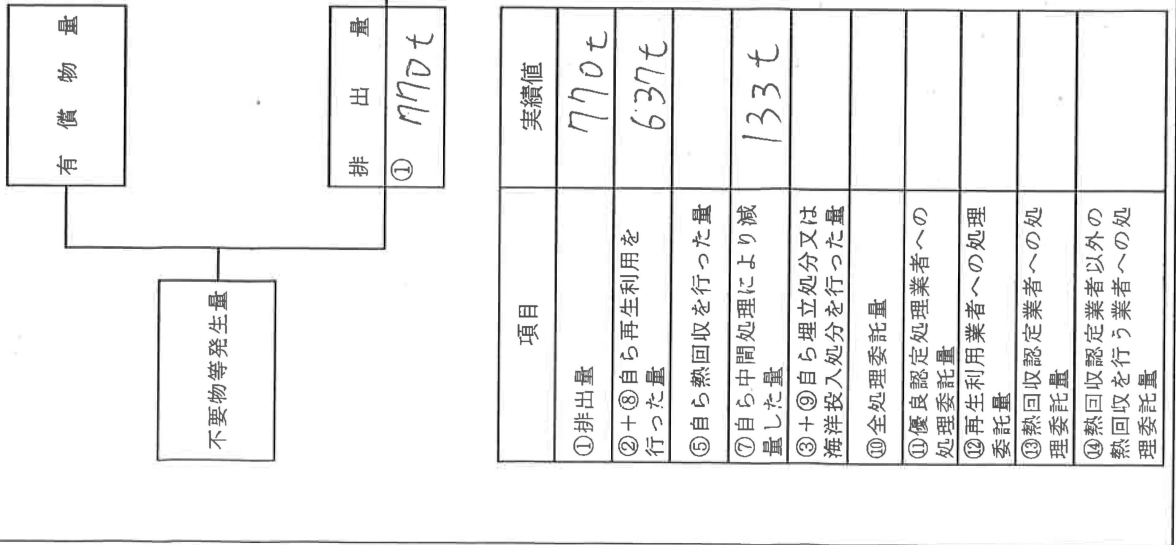 有償物量
不要物等発生量
排出量
① 770t
項目 実績値
①排出量 770t
②+⑧自ら再生利用を
行った量 637t
⑤自ら熱回収を行った量
⑦自ら中間処理により減
量した量 133t
③+⑨自ら埋立処分又は
海洋投入処分を行った量
⑩全処理委託量
⑪優良認定処理業者への
処理委託量
⑫再生利用業者への処理
委託量
⑬熱回収認定業者への処
理委託量
⑭熱回収認定業者以外の
熱回収を行う業者への処
理委託量